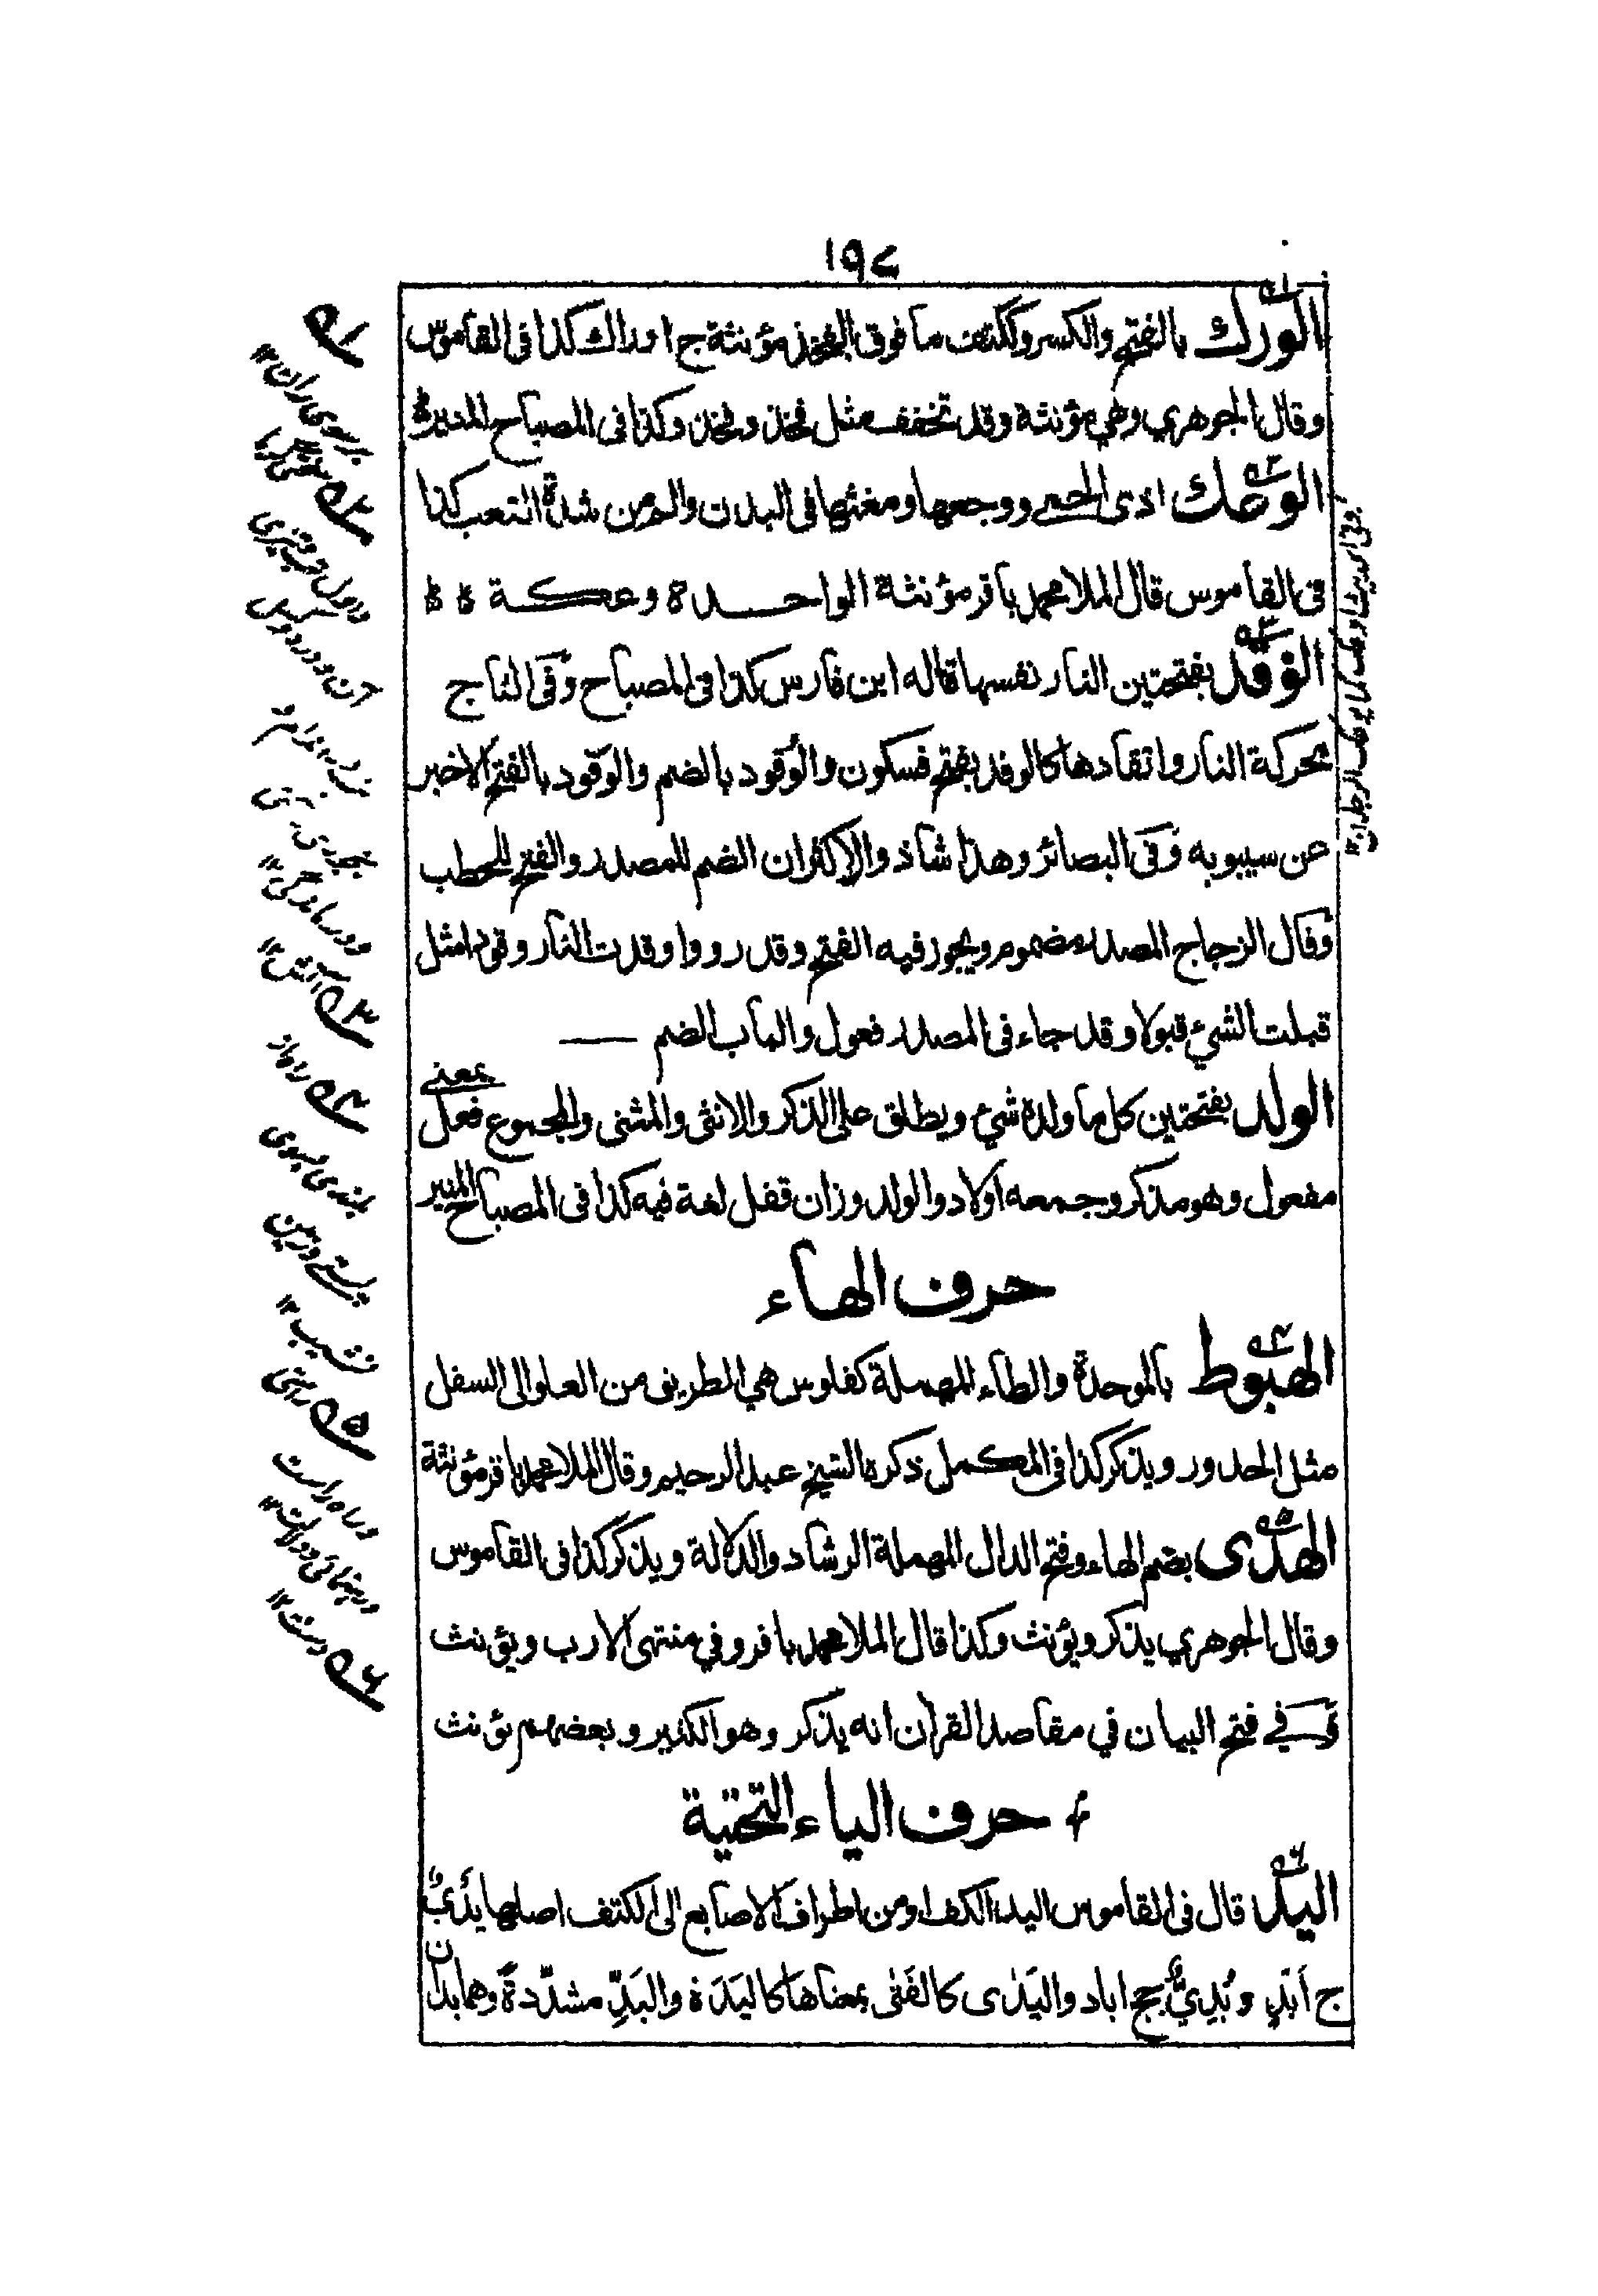 ١٩٧
الورك بالفتح والكسر وككتف ما فوق الفخذ مؤنثة ج اوراك كذا فى القاموس
وقال الجوهري وهي مؤنثة وقد تخفف مثل فخذ وفخذ وكذا فى المصباح المنير
الوعك اذى الحمى ووجعها ومغثها فى البدن والم من شدة التعب كذا
فى القاموس قال الملا محمد باقر مؤنثة الواحدة وعكة
الوقد بفتحتين النار نفسها قاله ابن فارس كذا فى المصباح وفى التاج
محركة النار واتقادها كالوقد بفتح فسكون والوُقود بالضم والوَقود بالفتح الاخير
عن سيبويه وفى البصائر وهذا شاذ والاكثر ان الضم للمصدر والفتح للحطب
وقال الزجاج المصدر مضموم ويجوز فيه الفتح وقد رووا وقدت النار وقودا مثل
قبلت الشيء قبولا وقد جاء فى المصدر فعول والباب الضم
الولد بفتحتين كل ما ولده شيء ويطلق على الذكر والانثى والمثنى والمجموع فعل بمعنى
مفعول وهو مذكر وجمعه اولاد والولد وزان قفل لغة فيه كذا فى المصباح المنير
حرف الهاء
الهبوط بالموحدة والطاء المهملة كفلوس هي الطريق من العلو الى السفل
مثل الحدور ويذكر كذا فى المكمل ذكره الشيخ عبد الرحيم وقال الملا محمد باقر مؤنثة
الهدى بضم الهاء وفتح الدال المهملة الرشاد والدلالة ويذكر كذا فى القاموس
وقال الجوهري يذكر ويؤنث وكذا قال الملا محمد باقر وفي منتهى الارب ويؤنث
وفي فتح البيان في مقاصد القرآن انه يذكر وهو الكثير وبعضهم يؤنث
حرف الياء التحتية
اليد قال فى القاموس اليد الكف او من اطراف الاصابع الى الكتف اصلها يَدْىٌ
ج اَيْدٍ ويُدِيٌّ جج اياد واليَدَى كالفَتَى بمعناها كاليَدَة واليَدِّ مشدّدةً وهما يدان
١
بر سوى ران ١٢
٢
٣ آتش ١٢
٤
بلندى بسوى
پستى وزمين
نشيب ١٢
٥ راستى
وراه راست
ورہنمائى ودلالت ١٢
٦ دست ١٢